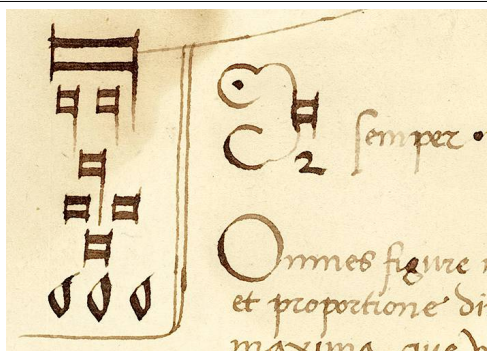 2
semper •
Omnes figure
et proportione di
maxima, que